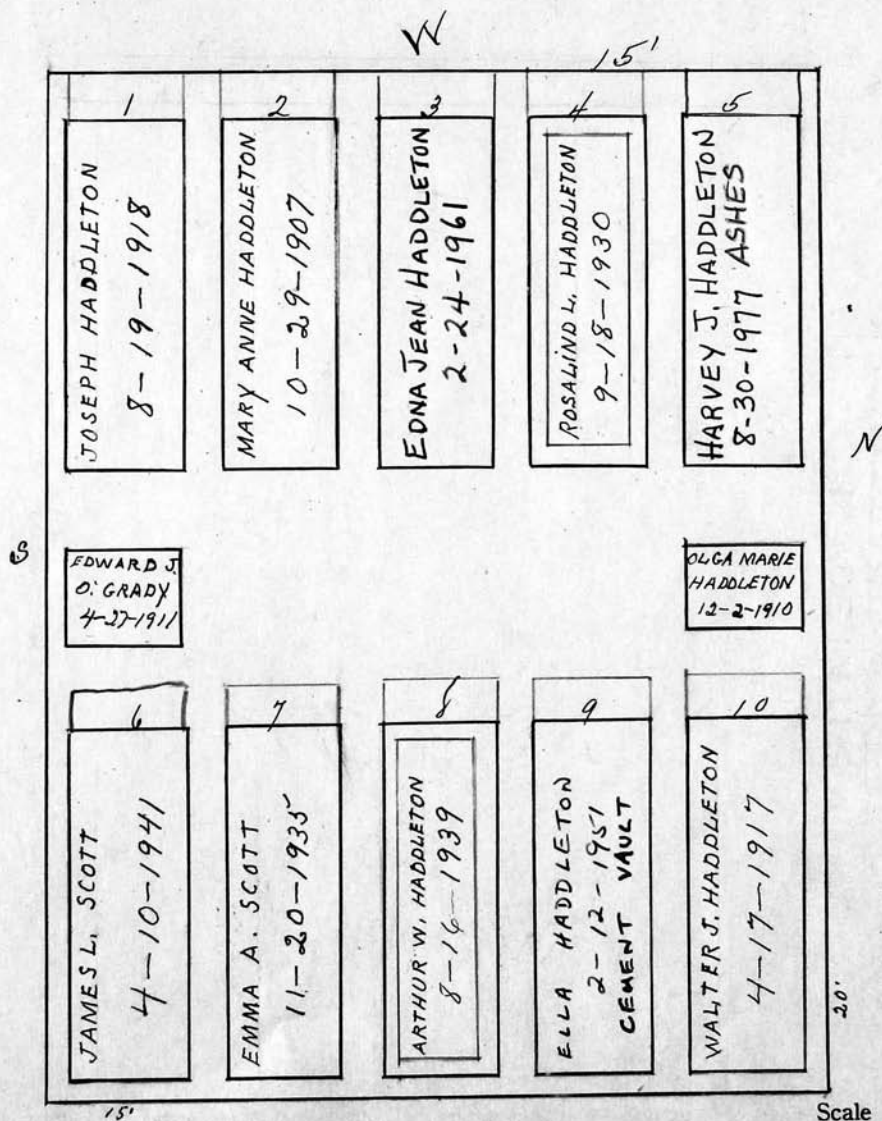 W
15'
1
JOSEPH HADDLETON
8-19-1918
2
MARY ANNE HADDLETON
10-29-1907
3
EDNA JEAN HADDLETON
2-24-1961
4
ROSALIND L. HADDLETON
9-18-1930
5
HARVEY J. HADDLETON
8-30-1977 ASHES
N
S
EDWARD J.
O'GRADY
4-27-1911
OLGA MARIE
HADDLETON
12-2-1910
6
JAMES L. SCOTT
4-10-1941
7
EMMA A. SCOTT
11-20-1935
8
ARTHUR W. HADDLETON
8-16-1939
9
ELLA HADDLETON
2-12-1951
CEMENT VAULT
10
WALTER J. HADDLETON
4-17-1917
20'
15'
Scale